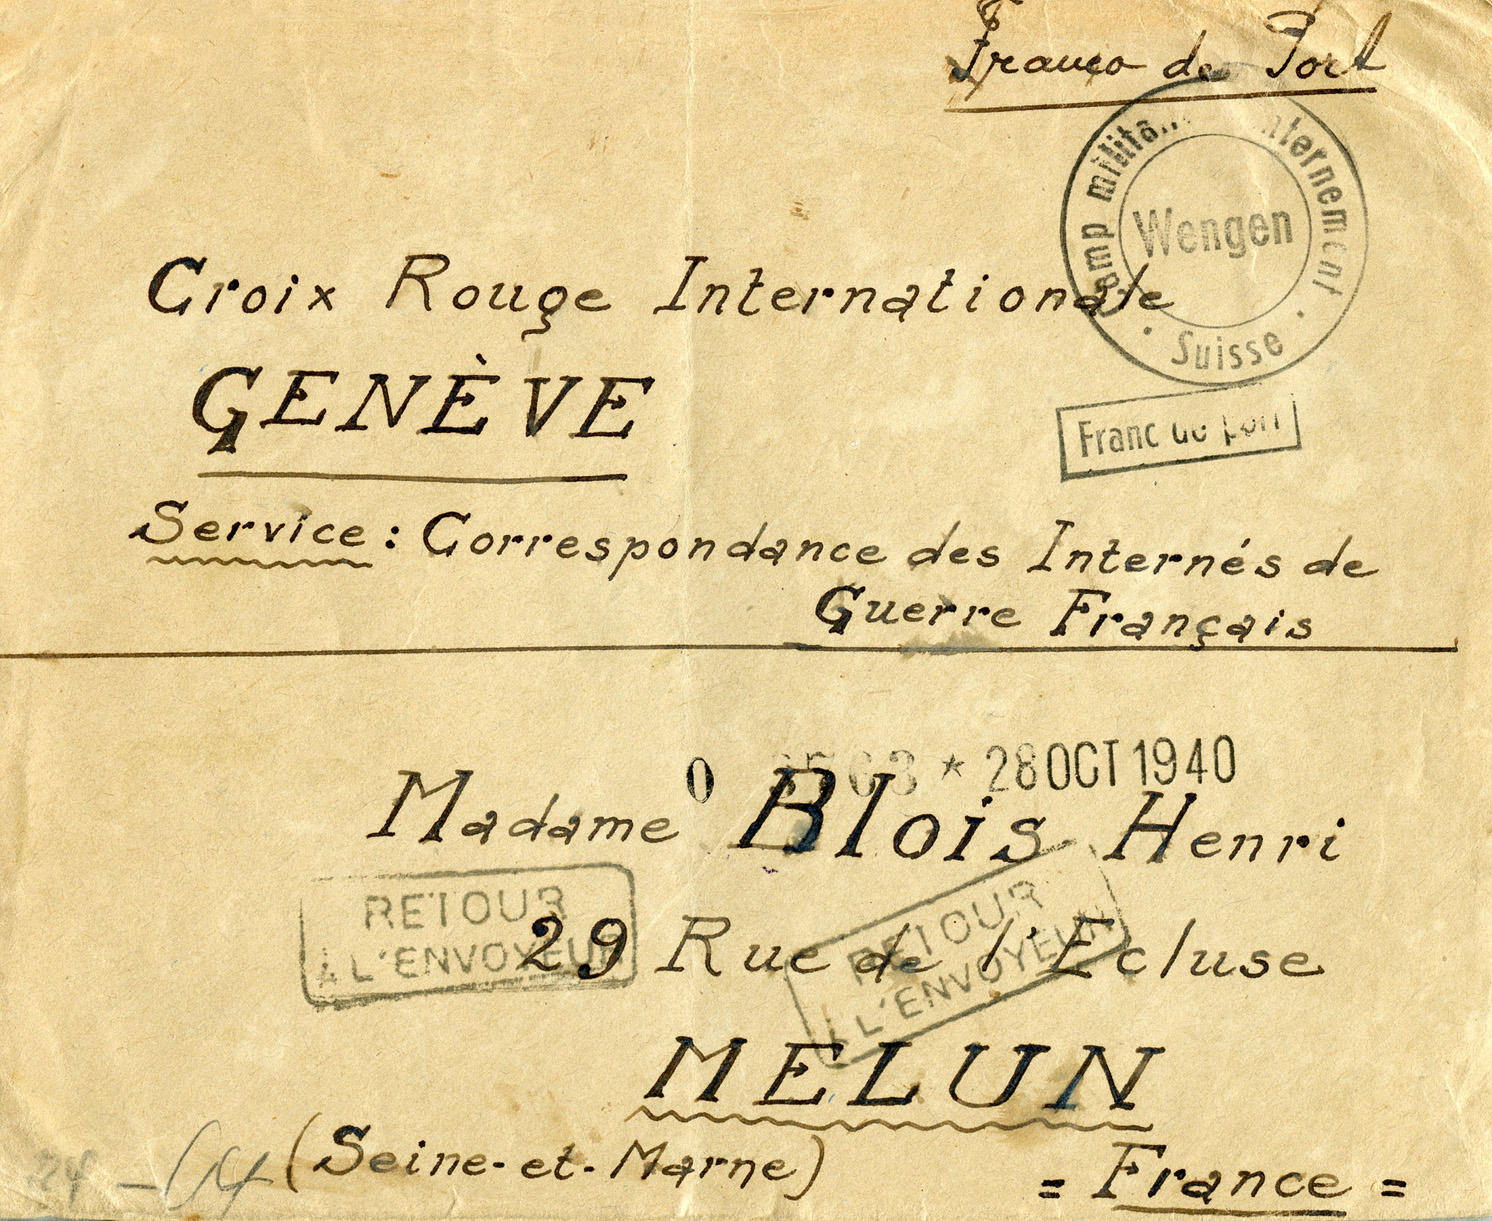 Franco de Port
Camp militaire internement
Wengen
· Suisse ·
Franc de port
Croix Rouge Internationale
GENÈVE
Service : Correspondance des Internés de
Guerre Français
0 * 28 OCT 1940
Madame Blois Henri
RETOUR
À L'ENVOYEUR
29 Rue de l'Ecluse
RETOUR
À L'ENVOYEUR
MELUN
(Seine-et-Marne)
= France =